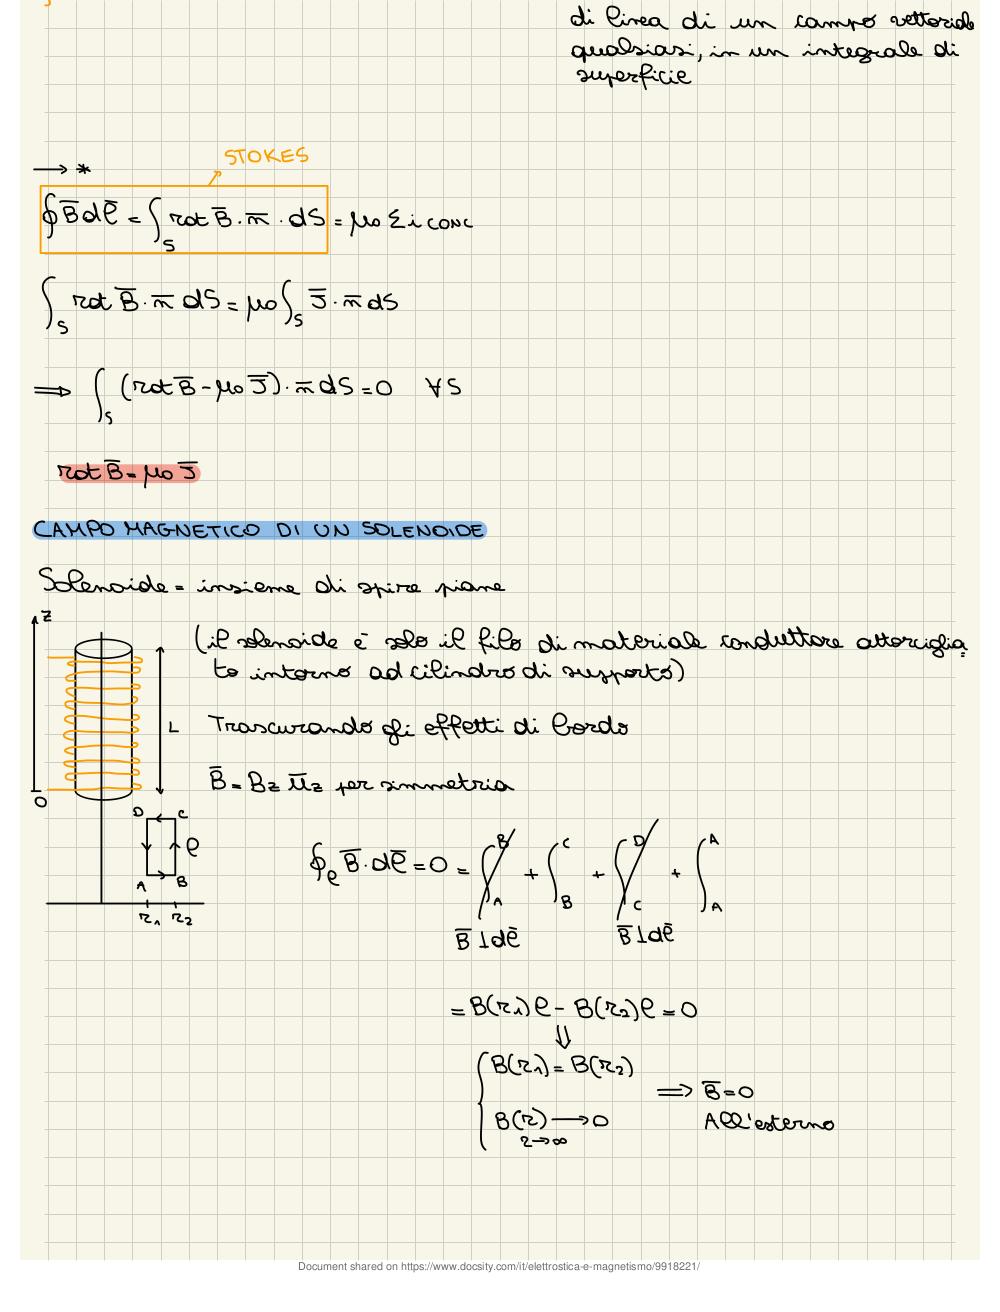 di linea di un campo vettoriale
qualsiasi, in un integrale di
superficie
STOKES
→ *
∮ B̄ dℓ̄ = ∫_S rot B̄ · n̄ · dS = μ₀ Σ i conc
∫_S rot B̄ · n̄ dS = μ₀ ∫_S J̄ · n̄ dS
⟹ ∫_S (rot B̄ - μ₀ J̄) · n̄ dS = 0 ∀S
rot B̄ = μ₀ J̄
CAMPO MAGNETICO DI UN SOLENOIDE
Solenoide = insieme di spire piane
z
(il solenoide è solo il filo di materiale conduttore attorciglia
to intorno ad cilindro di supporto)
L Trascurando gli effetti di bordo
B̄ = Bz ūz per simmetria
O
D C
ℓ
A B
r₁ r₂
∮_ℓ B̄ · dℓ̄ = 0 = ∫_A^B + ∫_B^C + ∫_C^D + ∫_A^A
B̄ ⊥ dℓ̄ B̄ ⊥ dℓ̄
= B(r₁)ℓ - B(r₂)ℓ = 0
⇓
B(r₁) = B(r₂)
⟹ B̄ = 0
B(r) → 0 All'esterno
r→∞
Document shared on https://www.docsity.com/it/elettrostica-e-magnetismo/9918221/